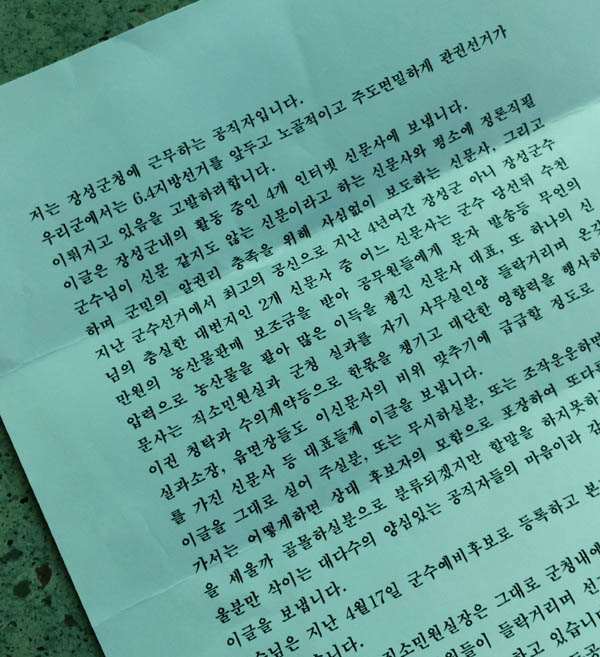 저는 장성군청에 근무하는 공직자입니다.
우리군에서는 6.4지방선거를 앞두고 노골적이고 주도면밀하게 관권선거가
이뤄지고 있음을 고발하려합니다.
이글은 장성군내의 활동 중인 4개 인터넷 신문사에 보냅니다.
군수님이 신문 같지도 않는 신문이라고 하는 신문사와 평소에 정론직필
하며 군민의 알권리 충족을 위해 사심없이 보도하는 신문사, 그리고
지난 군수선거에서 최고의 공신으로 지난 4년여간 장성군 아니 장성군수
님의 충실한 대변지인 2개 신문사 중 어느 신문사는 군수 당선뒤 수천
만원의 농산물판매 보조금을 받아 공무원들에게 문자 발송등 무언의
압력으로 농산물을 팔아 많은 이득을 챙긴 신문사 대표, 또 하나의 신
문사는 직소민원실과 군청 실과를 자기 사무실인양 들락거리며 온갖
이권 청탁과 수의계약등으로 한몫을 챙기고 대단한 영향력을 행사하
실과소장, 읍면장들도 이신문사의 비위 맞추기에 급급할 정도로
를 가진 신문사 등 대표들께 이글을 보냅니다.
이글을 그대로 실어 주실분, 또는 무시하실분, 또는 조작운운하면
가서는 어떻게하면 상대 후보자의 모함으로 포장하여 또다른
을 세울까 골몰하실분으로 분류되겠지만 할말을 하지못하
울분만 삭이는 대다수의 양심있는 공직자들의 마음이라 감
이글을 보냅니다.
수님은 지난 4월17일 군수예비후보로 등록하고 본
직소민원실장은 그대로 군청내에
원들이 들락거리며 선
하고 있습니다